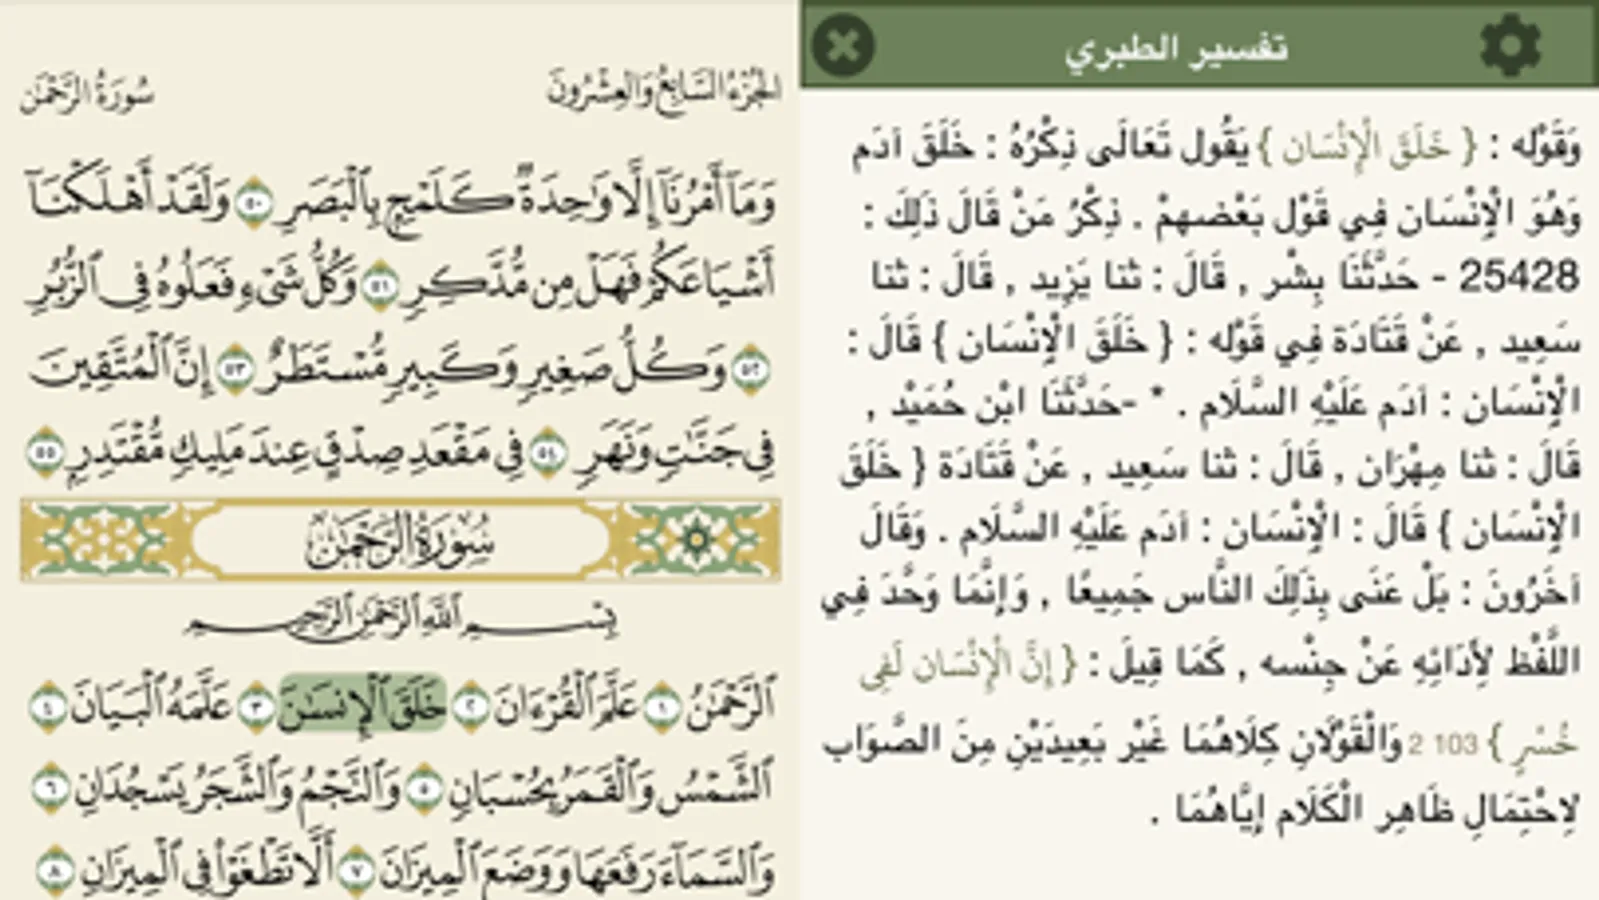 الجُزْءُ السَّابِعُ وَالعِشْرُونَ
سُورَةُ الرَّحْمَٰن
وَمَآ أَمْرُنَآ إِلَّا وَٰحِدَةٌ كَلَمْحٍ بِٱلْبَصَرِ ٥٠ وَلَقَدْ أَهْلَكْنَآ
أَشْيَاعَكُمْ فَهَلْ مِن مُّدَّكِرٍ ٥١ وَكُلُّ شَىْءٍ فَعَلُوهُ فِى ٱلزُّبُرِ
٥٢ وَكُلُّ صَغِيرٍ وَكَبِيرٍ مُّسْتَطَرٌ ٥٣ إِنَّ ٱلْمُتَّقِينَ
فِى جَنَّٰتٍ وَنَهَرٍ ٥٤ فِى مَقْعَدِ صِدْقٍ عِندَ مَلِيكٍ مُّقْتَدِرٍ ٥٥
سُورَةُ الرَّحْمَٰن
بِسْمِ ٱللَّهِ ٱلرَّحْمَٰنِ ٱلرَّحِيمِ
ٱلرَّحْمَٰنُ ١ عَلَّمَ ٱلْقُرْءَانَ ٢ خَلَقَ ٱلْإِنسَٰنَ ٣ عَلَّمَهُ ٱلْبَيَانَ ٤
ٱلشَّمْسُ وَٱلْقَمَرُ بِحُسْبَانٍ ٥ وَٱلنَّجْمُ وَٱلشَّجَرُ يَسْجُدَانِ ٦
وَٱلسَّمَآءَ رَفَعَهَا وَوَضَعَ ٱلْمِيزَانَ ٧ أَلَّا تَطْغَوْا۟ فِى ٱلْمِيزَانِ ٨
تفسير الطبري
وَقَوْله : { خَلَقَ الْإِنْسَان } يَقُول تَعَالَى ذِكْرُهُ : خَلَقَ آدَم
وَهُوَ الْإِنْسَان فِي قَوْل بَعْضهمْ . ذِكْرُ مَنْ قَالَ ذَلِكَ :
25428 - حَدَّثَنَا بِشْر , قَالَ : ثنا يَزِيد , قَالَ : ثنا
سَعِيد , عَنْ قَتَادَة فِي قَوْله : { خَلَقَ الْإِنْسَان } قَالَ :
الْإِنْسَان : آدَم عَلَيْهِ السَّلَام . * -حَدَّثَنَا ابْن حُمَيْد ,
قَالَ : ثنا مِهْرَان , قَالَ : ثنا سَعِيد , عَنْ قَتَادَة { خَلَقَ
الْإِنْسَان } قَالَ : الْإِنْسَان : آدَم عَلَيْهِ السَّلَام . وَقَالَ
آخَرُونَ : بَلْ عَنَى بِذَلِكَ النَّاس جَمِيعًا , وَإِنَّمَا وَحَّدَ فِي
اللَّفْظ لِأَدَائِهِ عَنْ جِنْسه , كَمَا قِيلَ : { إِنَّ الْإِنْسَان لَفِي
خُسْرٍ } 103 2 وَالْقَوْلَانِ كِلَاهُمَا غَيْر بَعِيدَيْنِ مِنَ الصَّوَاب
لِاحْتِمَالِ ظَاهِر الْكَلَام إِيَّاهُمَا .